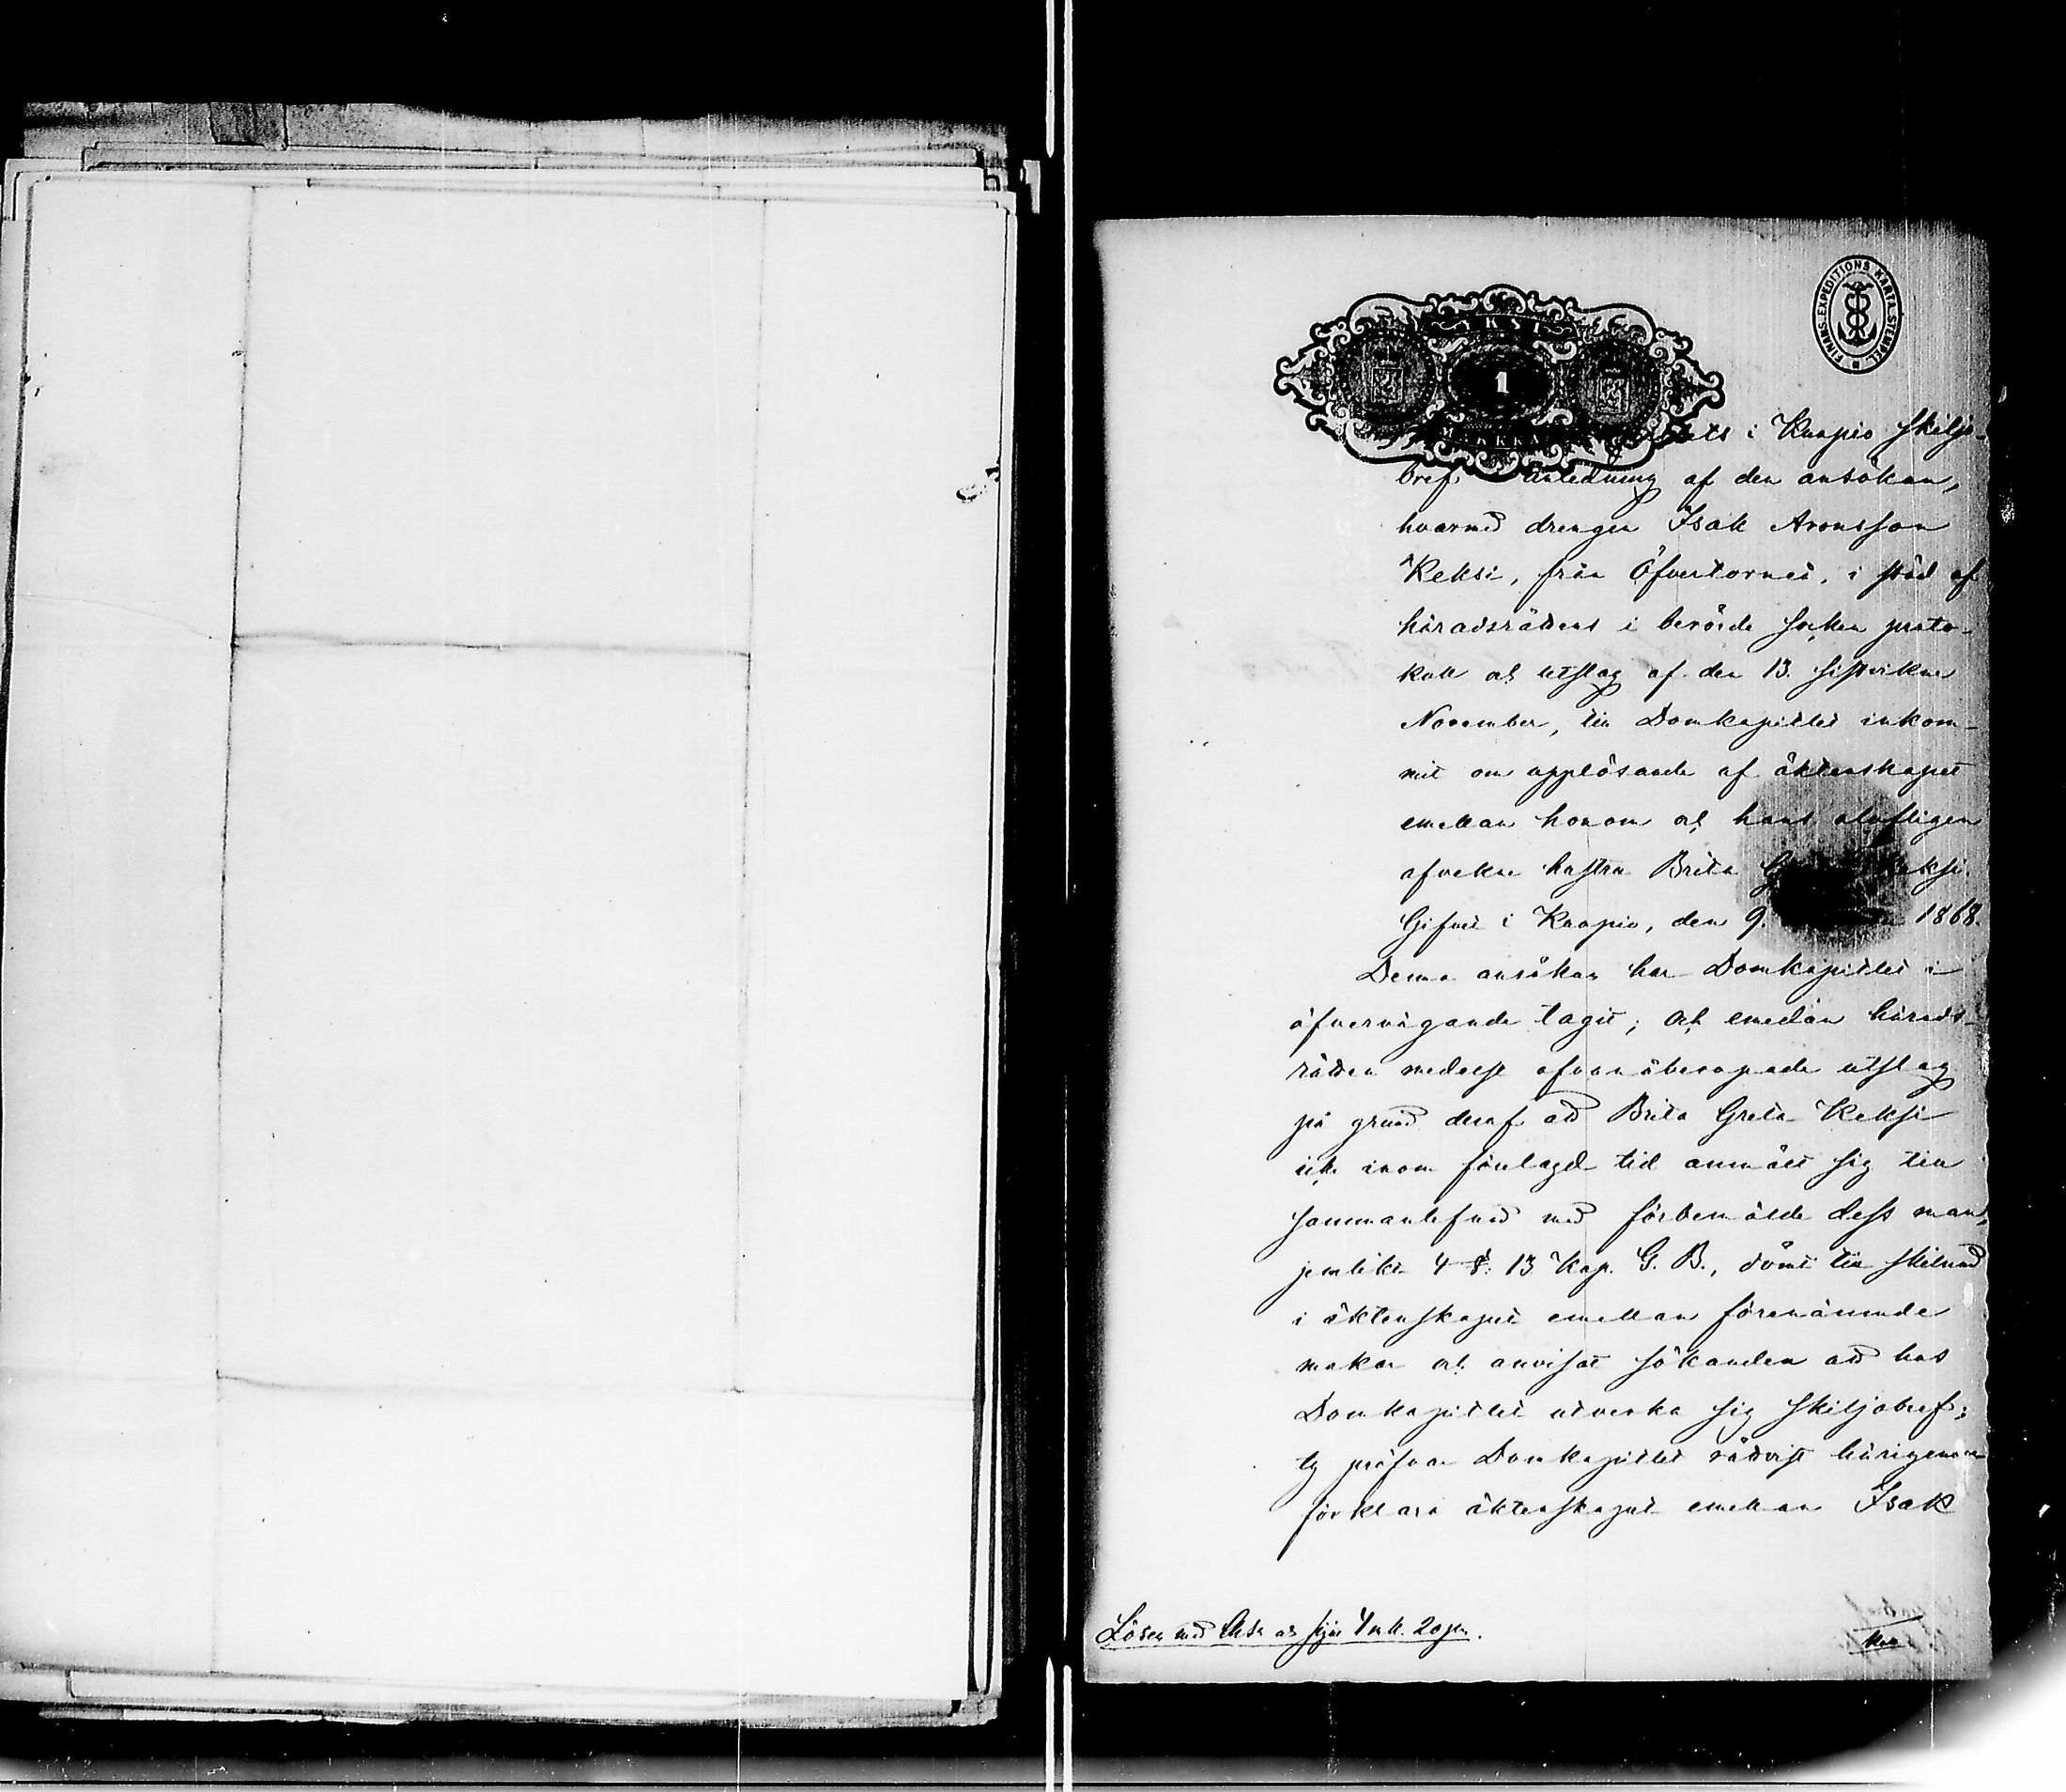 FINANS. EXPEDITIONS KARTA. STEMPEL.
YKSI
1
MARKKA
i Kuopio skiljo-
bref i anledning af den ansökan,
hvarmed drengen Isak Aronsson
Keksi, från Öfvertorneå, i stöd af
häradsrättens i berörde socken proto-
koll och utslag af den 13. sistvikne
November, till Domkapitlet inkom-
mit om upplösande af äktenskapet
emellan honom och hans olofligen
afvekne hustru Brita Keksi.
Gifvet i Kuopio, den 9. 1868.
Denna ansökan har Domkapitlet i
öfvervägande tagit; och emedan härads-
rätten medelst ofvanåberopade utslag
på grund deraf att Brita Greta Keksi
icke inom förelagd tid anmält sig till
sammanlefnad med förbemälde dess man,
jemlikt 4 §. 13 Kap. G. B., dömt till skilnad
i äktenskapet emellan förenämnde
makar och anvisat sökanden att hos
Domkapitlet utverka sig skiljobref;
ty pröfvar Domkapitlet rättvist härigenom
förklara äktenskapet emellan Isak
Lösen med Charta och 4 mk. 20 pen.